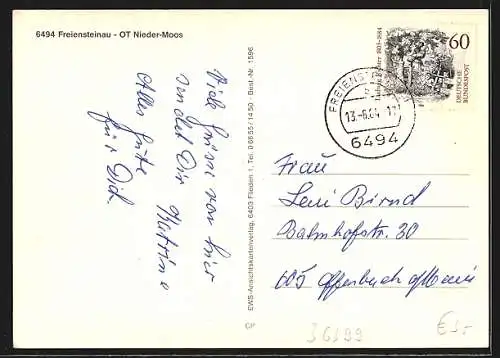 6494 Freiensteinau - OT Nieder-Moos
Viele Grüße von hier
sendet Dir Katrin
Alles Gute
für Dich.
EWS-Ansichtskartenverlag, 6403 Flieden 1, Tel. 0 66 55 / 14 50 - Best.-Nr. 1596
CP
1803-1884
60
DEUTSCHE
BUNDESPOST
FREIENST
13-6.84-17
6494
Frau
Leni Birnd
Bahnhofstr. 30
605 Offenbach a/Main
36399
€3,-